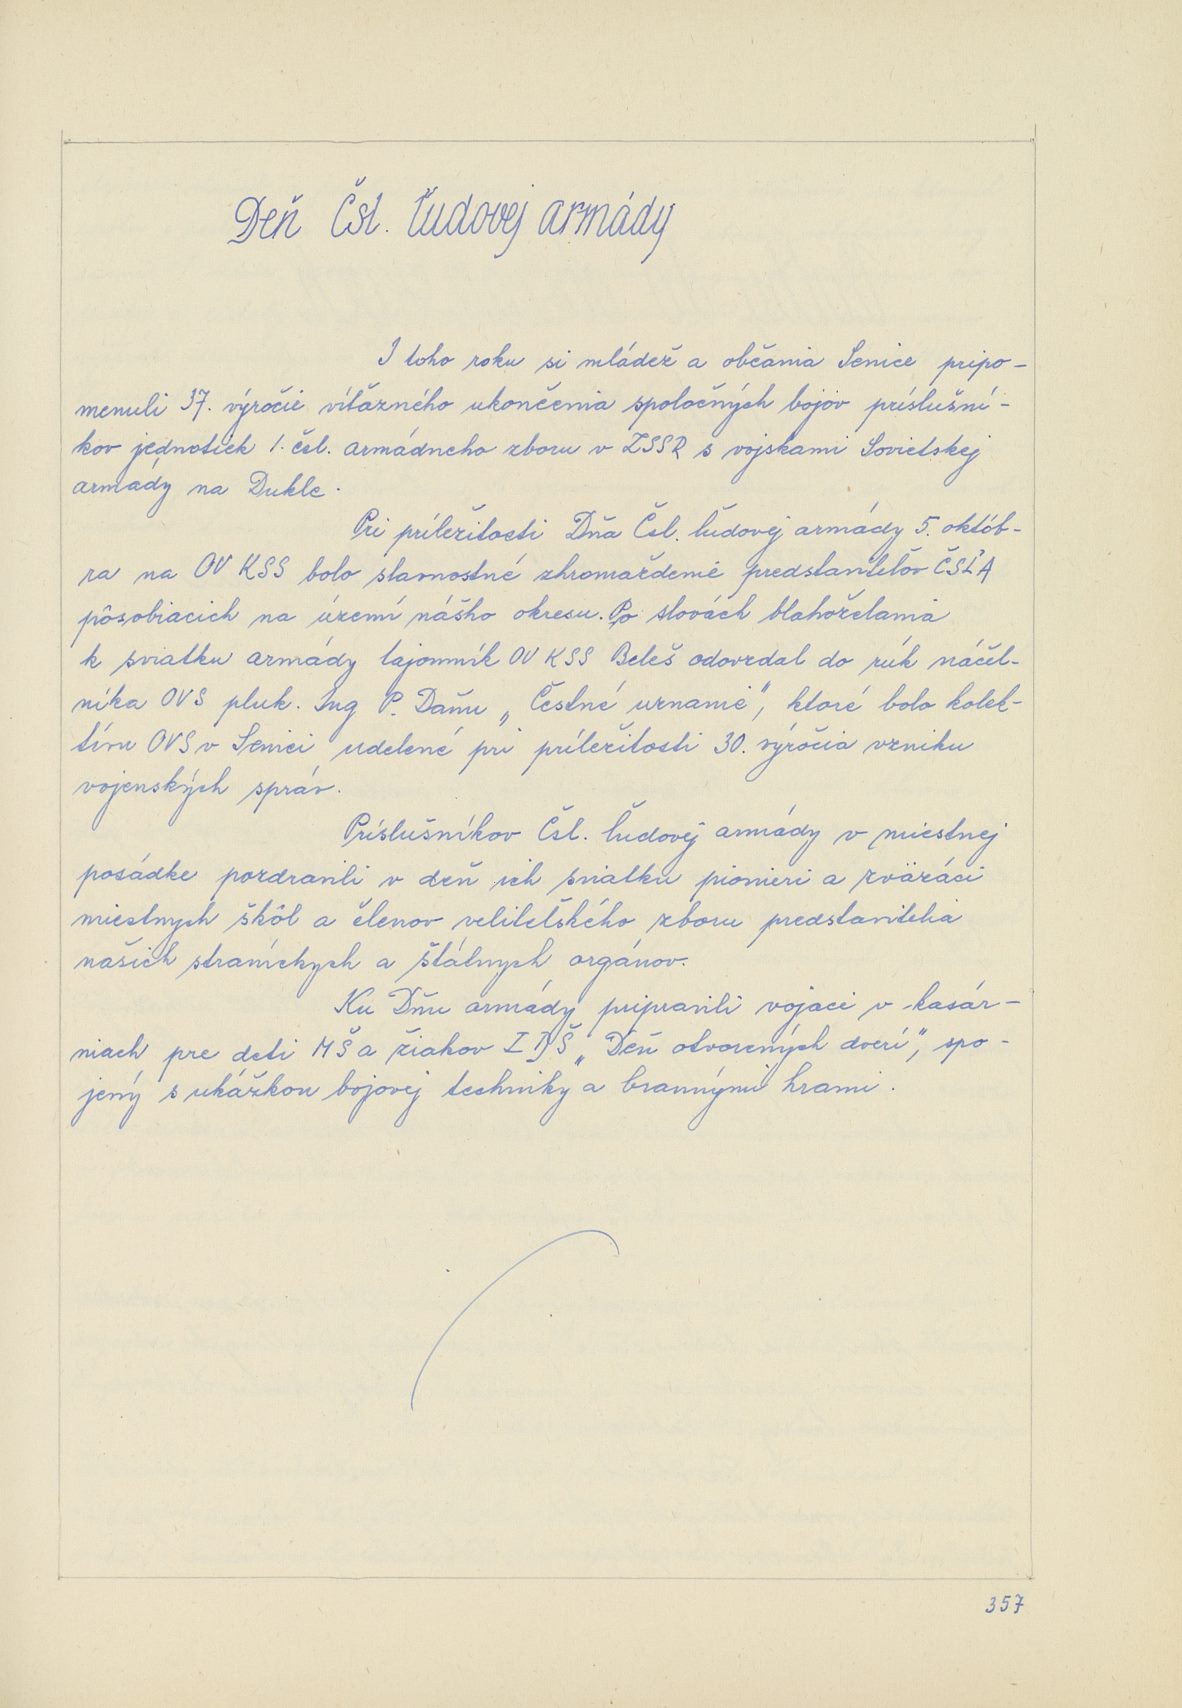 Deň Čsl. ľudovej armády
I toho roku si mládež a občania Senice pripo-
menuli 37. výročie víťazného ukončenia spoločných bojov príslušní-
kov jednotiek 1. čsl. armádneho zboru v ZSSR s vojskami Sovietskej
armády na Dukle.
Pri príležitosti Dňa Čsl. ľudovej armády 5. októb-
ra na OV KSS bolo slavnostné zhromaždenie predstaviteľov ČSĽA
pôsobiacich na území nášho okresu. Po slovách blahoželania
k sviatku armády tajomník OV KSS Beleš odovzdal do rúk náčel-
níka OVS pluk. Ing P. Daňu „Čestné uznanie", ktoré bolo kolek-
tívu OVS v Senici udelené pri príležitosti 30. výročia vzniku
vojenských správ.
Príslušníkov Čsl. ľudovej armády v miestnej
posádke pozdravili v deň ich sviatku pionieri a zväzáci
miestnych škôl a členov veliteľského zboru predstavitelia
našich straníckych a štátnych orgánov.
Ku Dňu armády pripravili vojaci v kasár-
niach pre deti MŠ a žiakov I ZDŠ „Deň otvorených dverí", spo-
jený s ukážkou bojovej techniky a brannými hrami.
357